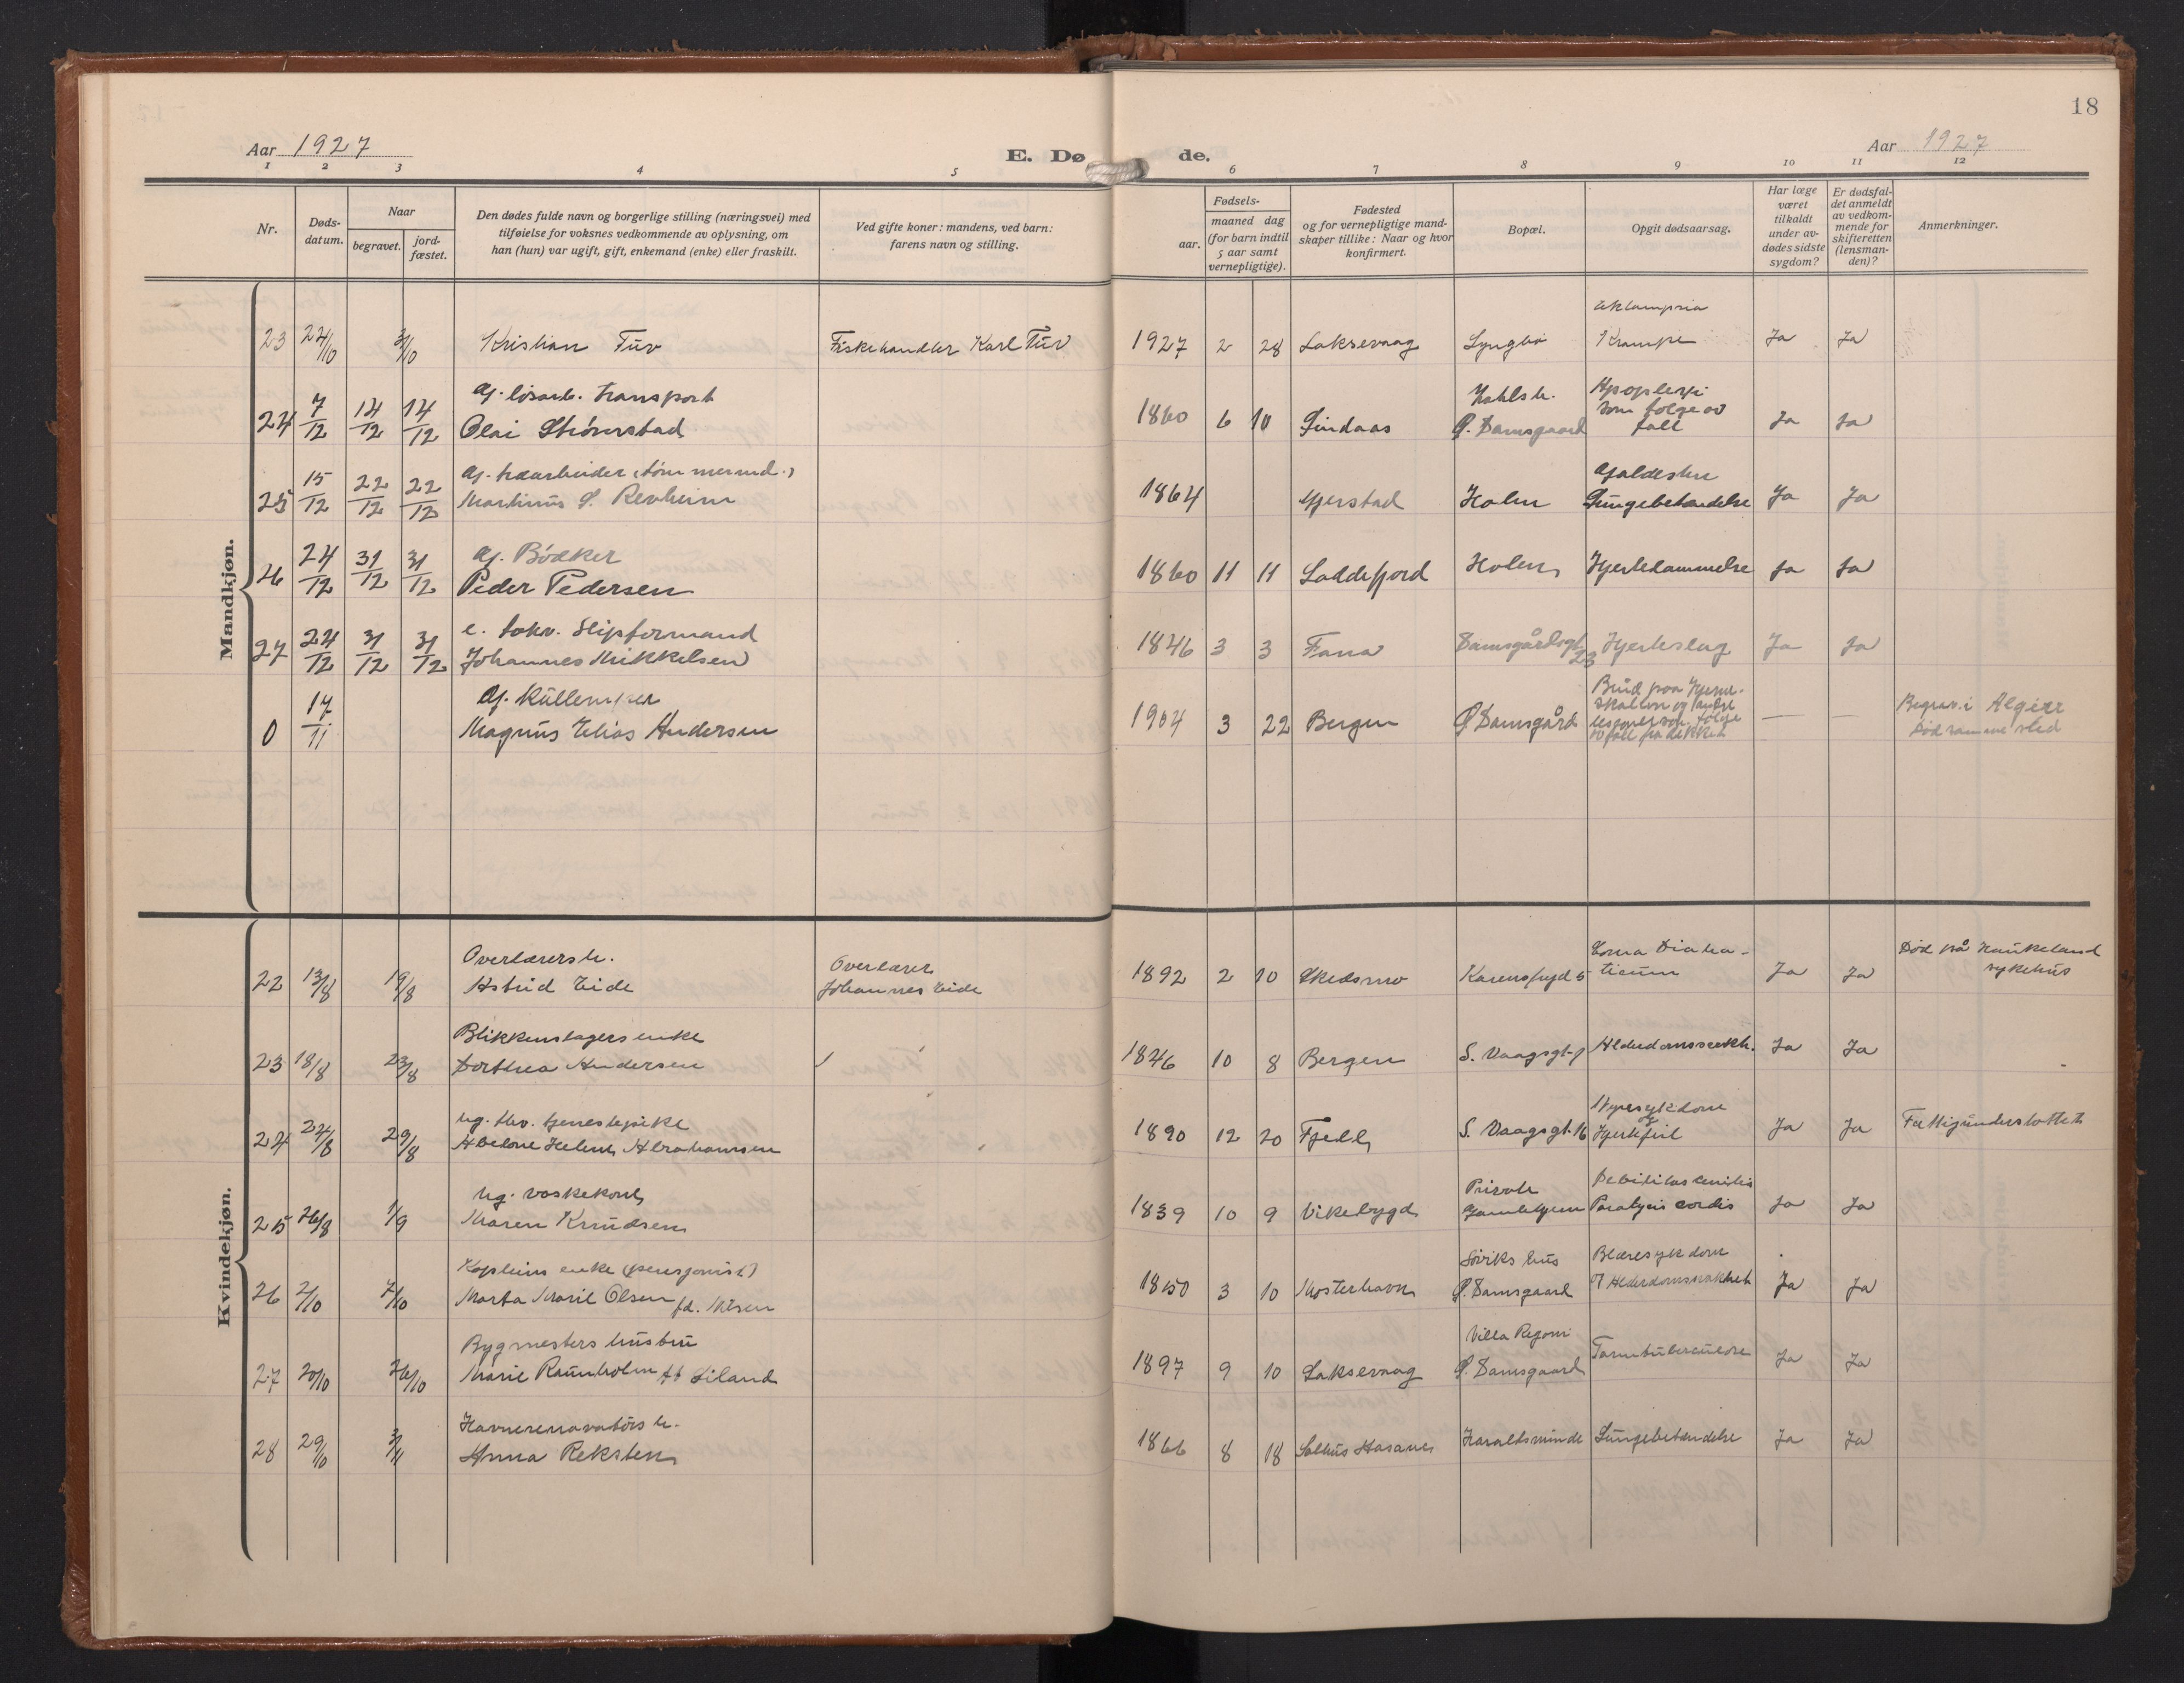 18
Aar 1927
E. Døde.
Aar 1927
1 2 3 4 5 6 7 8 9 10 11 12
Nr.
Døds-
datum.
Naar
begravet.
jord-
fæstet.
Den dødes fulde navn og borgerlige stilling (næringsvei) med
tilføielse for voksnes vedkommende av oplysning, om
han (hun) var ugift, gift, enkemand (enke) eller fraskilt.
Ved gifte koner: mandens, ved barn:
farens navn og stilling.
Fødsels-
aar.
maaned dag
(for barn indtil
5 aar samt
vernepligtige).
Fødested
og for vernepligtige mand-
skaper tillike: Naar og hvor
konfirmert.
Bopæl.
Opgit dødsaarsag.
Har læge
været
tilkaldt
under av-
dødes sidste
sygdom?
Er dødsfal-
det anmeldt
av vedkom-
mende for
skifteretten
(lensman-
den)?
Anmerkninger.
Mandkjøn.
eklampsia
23 24/10 3/10 Kristian Tuv Fiskehandler Karl Tuv 1927 2 28 Laksevaag Lyngbø Krampe Ja Ja
g. løsarb. transport Apoplexi
24 7/12 14/12 14/12 Olai 1860 6 10 Lindaas Ø. Damsgaard som følge av fall Ja Ja
g. (tømmermd.) Galdesten
25 15/12 22/12 22/12 Martinus Revheim 1864 Holen Lungebetændelse Ja Ja
g. Bødker
26 24/12 31/12 31/12 Peder Pedersen 1860 11 11 Laddefjord Holen Hjertelammelse Ja Ja
e. Slipformand
27 24/12 31/12 31/12 Johannes Mikkelsen 1846 3 3 Fana Damsgårdsgt 23 Hjerteslag Ja Ja
g. Kullemper
0 17/11 Magnus Elias Andersen 1904 3 22 Bergen Ø Damsgård Brud paa hjerneskallen og andre — — Begrav. i Algier
av fall fra dekket Død samme sted
Kvindekjøn.
Overlærers h. Overlærer Coma Diabe- Død på Haukeland
22 13/8 19/8 Astrid Eide Johannes Eide 1892 2 10 Skedsmo ticum Ja Ja sykehus
Blikkenslagers enke
23 18/8 23/8 Dorthea Andersen 1846 10 8 Bergen S. Vaagsgt. Alderdomssvakh. Ja Ja
ug. tjenestepike Nyresykdom
24 24/8 29/8 Abelone Helene Abrahamsen 1890 12 20 Fjell S. Vaagsgt. 16 Hjertefeil Ja Ja Fattigunderstøttet
ug. vaskekone Private Debilitas senilis
25 26/8 1/9 Maren Knudsen 1839 10 9 Vikebygd Gamlehjem Paralysis cordis Ja Ja
enke (pensjonist) Søviks hus Blæresykdom
26 2/10 7/10 Marta Marie Olsen fd. Nilsen 1850 3 10 Mosterhavn Ø. Damsgaard Alderdomssvakhet Ja Ja
Bygmesters hustru Villa
27 20/10 26/10 Marie Raunholm ff Liland 1897 9 10 Laksevaag Ø. Damsgaard Tarmtuberculose Ja Ja
Havnerenovatørs h.
28 29/10 3/11 Anna Reksten 1866 8 18 Salhus Haraldsminde Lungebetændelse Ja Ja